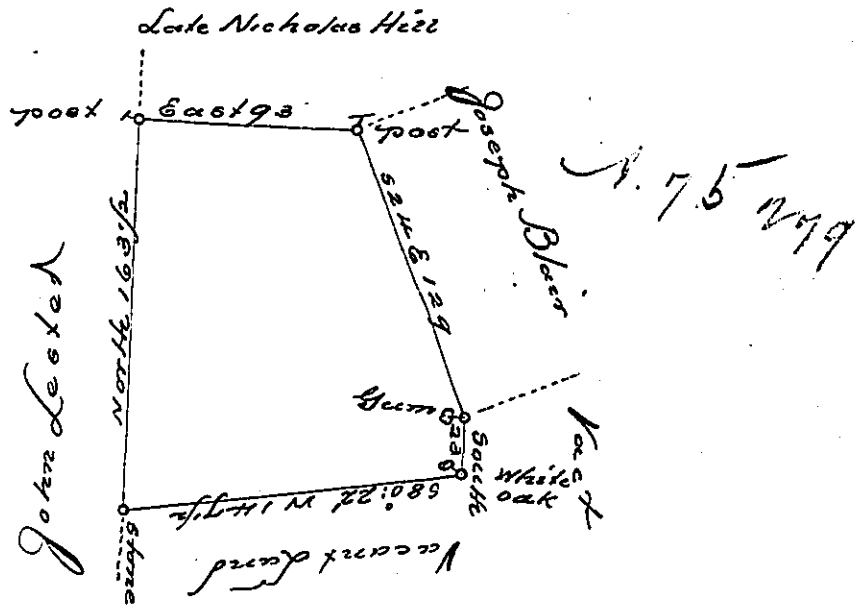 Late Nicholas Hill
post
East 93
post
Joseph Blair
N. 75 279
S 24 E 129
John Lester
North 163 1/2
Gum
23
South
White
oak
Vact
S80:22' W 147 1/2
stone
Vacant Land